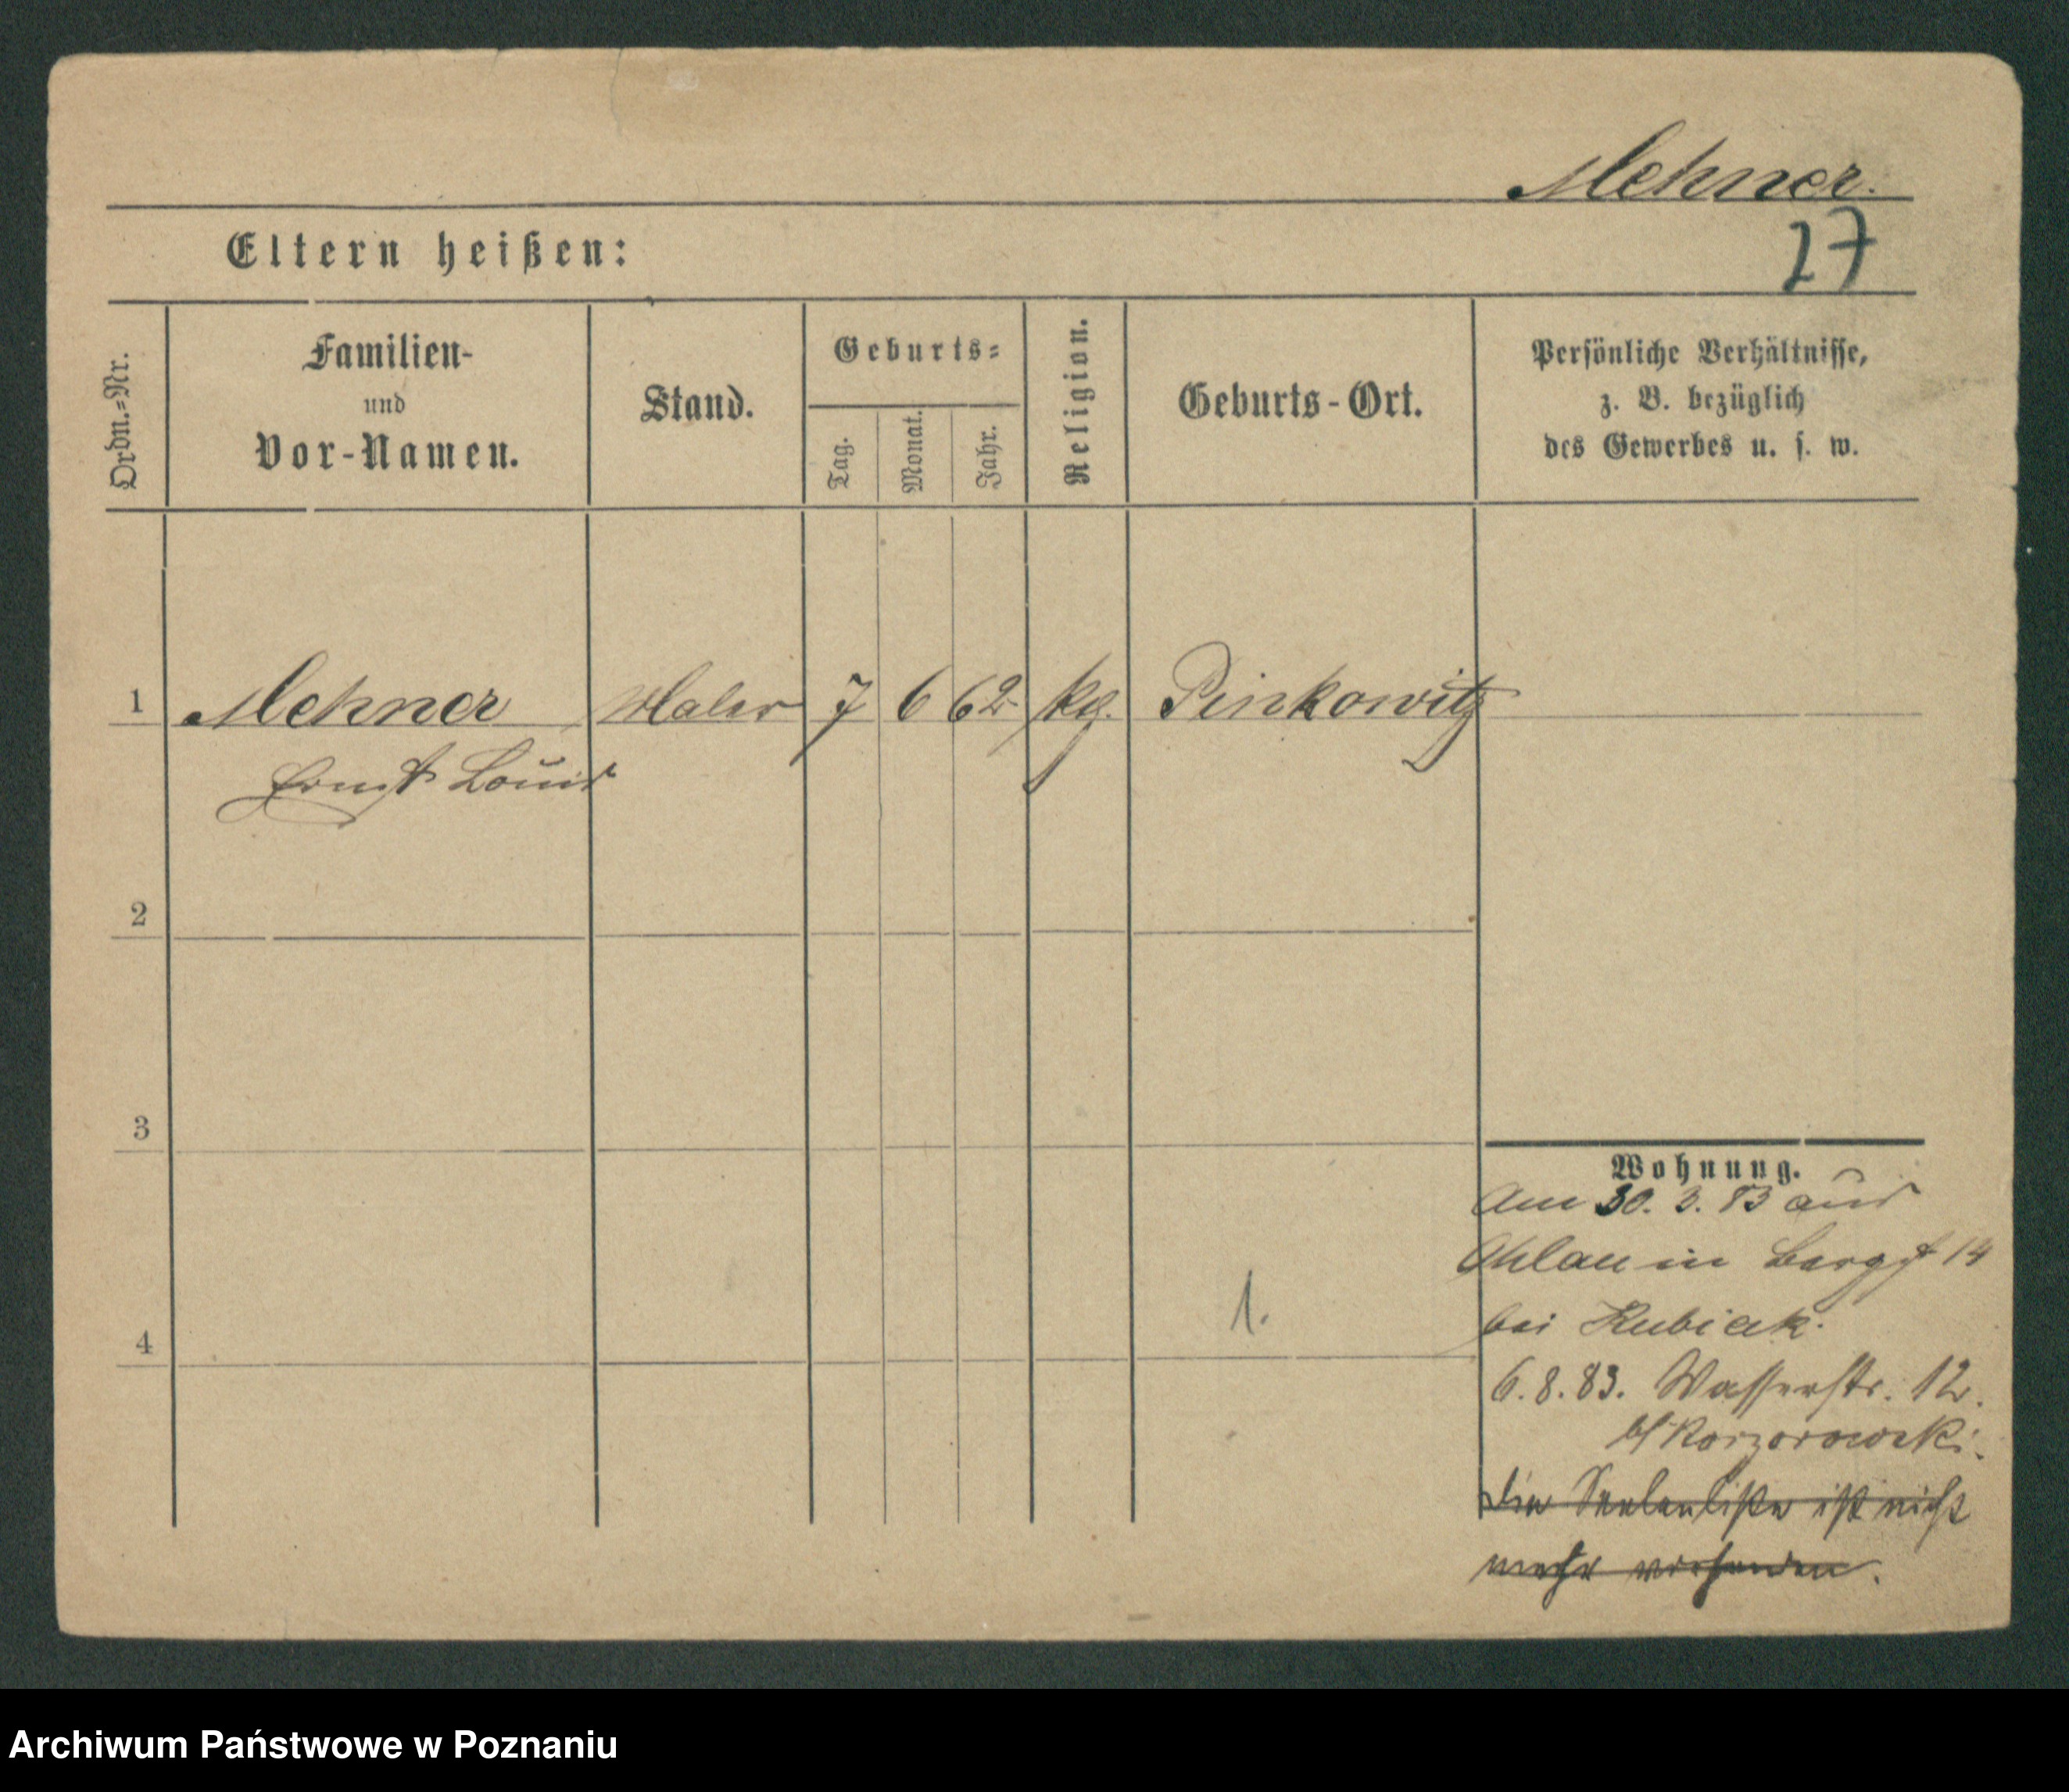 Mehner.
27
Eltern heißen:
Ordn.=Nr.
Familien-
und
Vor-Namen.
Stand.
Geburts=
Tag.
Monat.
Jahr.
Religion.
Geburts-Ort.
Persönliche Verhältnisse,
z. B. bezüglich
des Gewerbes u. s. w.
1 Mehner Maler 7 6 62 Pinkowitz
Ernst Louis
2
3
4
1.
Wohnung.
Am 30. 3. 83 aus
Ohlau in Bergst 14
bei Kubiak.
6. 8. 83. Wasserstr. 12.
die Seelenliste ist nicht
mehr vorhanden.
Archiwum Państwowe w Poznaniu